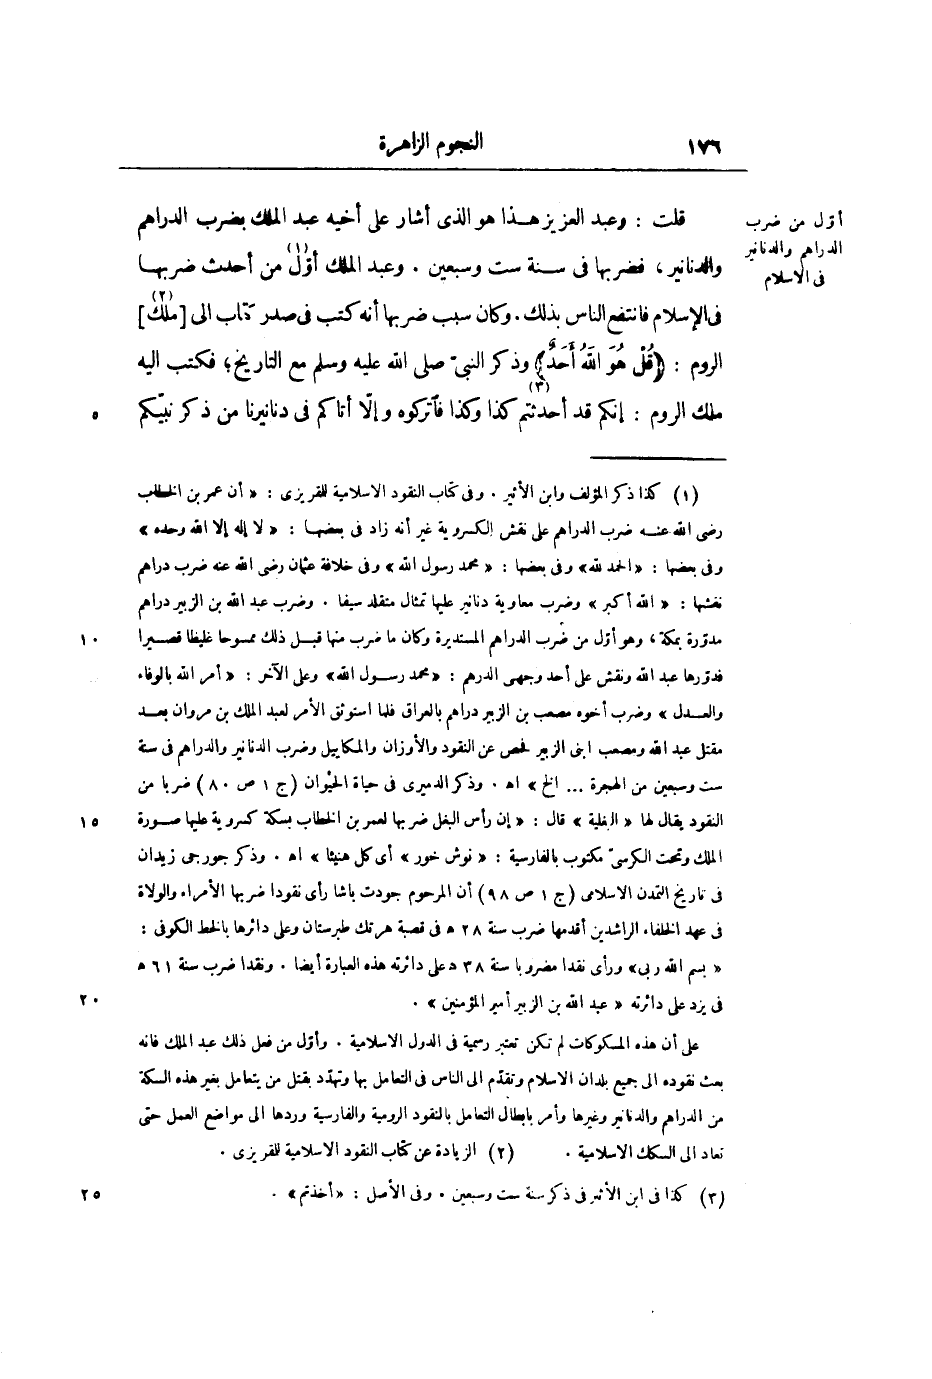 ١٧٦
النجوم الزاهرة
أوّل من ضرب
الدراهم والدنانير
فى الاسلام
قلت : وعبد العزيز هــذا هو الذى أشار على أخيه عبد الملك بضرب الدراهم
والدنانير، فضربها فى سـنة ست وسبعين . وعبد الملك أوّل (١) من أحدث ضربهـا
فى الإسلام فانتفع الناس بذلك . وكان سبب ضربها أنه كتب فى صدر كتاب الى [ملك] (٢)
الروم : ﴿قُلْ هُوَ اللهُ أَحَدٌ﴾ وذكر النبىّ صلى الله عليه وسلم مع التاريخ؛ فكتب اليه
ملك الروم : إنكم قد أحدثتم (٣) كذا وكذا فآتركوه وإلّا أتاكم فى دنانيرنا من ذكر نبيّكم
٥
(١) كذا ذكر المؤلف وابن الأثير . وفى كتاب النقود الاسلامية للقريزى : « أن عمر بن الخطاب
رضى الله عنــه ضرب الدراهم على نقش الكسروية غير أنه زاد فى بعضهـا : « لا إله إلا الله وحده »
وفى بعضها : «الحمد لله» وفى بعضها : « محمد رسول الله » وفى خلافة عثمان رضى الله عنه ضرب دراهم
نقشها : « الله أكبر » وضرب معاوية دنانير عليها تمثال متقلد سيفا . وضرب عبد الله بن الزبير دراهم
مدوّرة بمكة ، وهو أوّل من ضرب الدراهم المستديرة وكان ما ضرب منها قبـل ذلك ممسوحا غليظا قصـيرا
١٠
فدوّرها عبد الله ونقش على أحد وجهى الدرهم : «محمد رسـول الله» وعلى الآخر : « أمر الله بالوفاء
والعــدل » وضرب أخوه مصعب بن الزبير دراهم بالعراق فلما استوثق الأمر لعبد الملك بن مروان بعــد
مقتل عبد الله ومصعب ابنى الزبير فحص عن النقود والأوزان والمكاييل وضرب الدنانير والدراهم فى سنة
ست وسبعين من الهجرة ... الخ » اه . وذكر الدميرى فى حياة الحيوان (ج ١ ص ٨٠) ضربا من
النقود يقال لها « البغلية » قال : « إن رأس البغل ضربها لعمر بن الخطاب بسكة كسروية عليها صـورة
١٥
الملك وتحت الكرسىّ مكتوب بالفارسية : « نوش خور » أى كل هنيئا » اه . وذكر جورجى زيدان
فى تاريخ التمدن الاسلامى (ج ١ ص ٩٨) أن المرحوم جودت باشا رأى نقودا ضربها الأمراء والولاة
فى عهد الخلفاء الراشدين أقدمها ضرب سنة ٢٨ ه فى قصبة هرتك طبرستان وعلى دائرها بالخط الكوفى :
« بسم الله ربى» ورأى نقدا مضروبا سنة ٣٨ ه على دائرته هذه العبارة أيضا . ونقدا ضرب سنة ٦١ ه
فى يزد على دائرته « عبد الله بن الزبير أمير المؤمنين » .
٢٠
على أن هذه المسكوكات لم تكن تعتبر رسمية فى الدول الاسلامية . وأوّل من فعل ذلك عبد الملك فانه
بعث نقوده الى جميع بلدان الاسلام وتقدّم الى الناس فى التعامل بها وتهدّد بقتل من يتعامل بغير هذه السكة
من الدراهم والدنانير وغيرها وأمر بابطال التعامل بالنقود الرومية والفارسية وردها الى مواضع العمل حتى
تعاد الى السكك الاسلامية . (٢) الزيادة عن كتاب النقود الاسلامية للقريزى .
(٣) كذا فى ابن الأثير فى ذكر سنة ست وسبعين . وفى الأصل : «أخذتم» .
٢٥